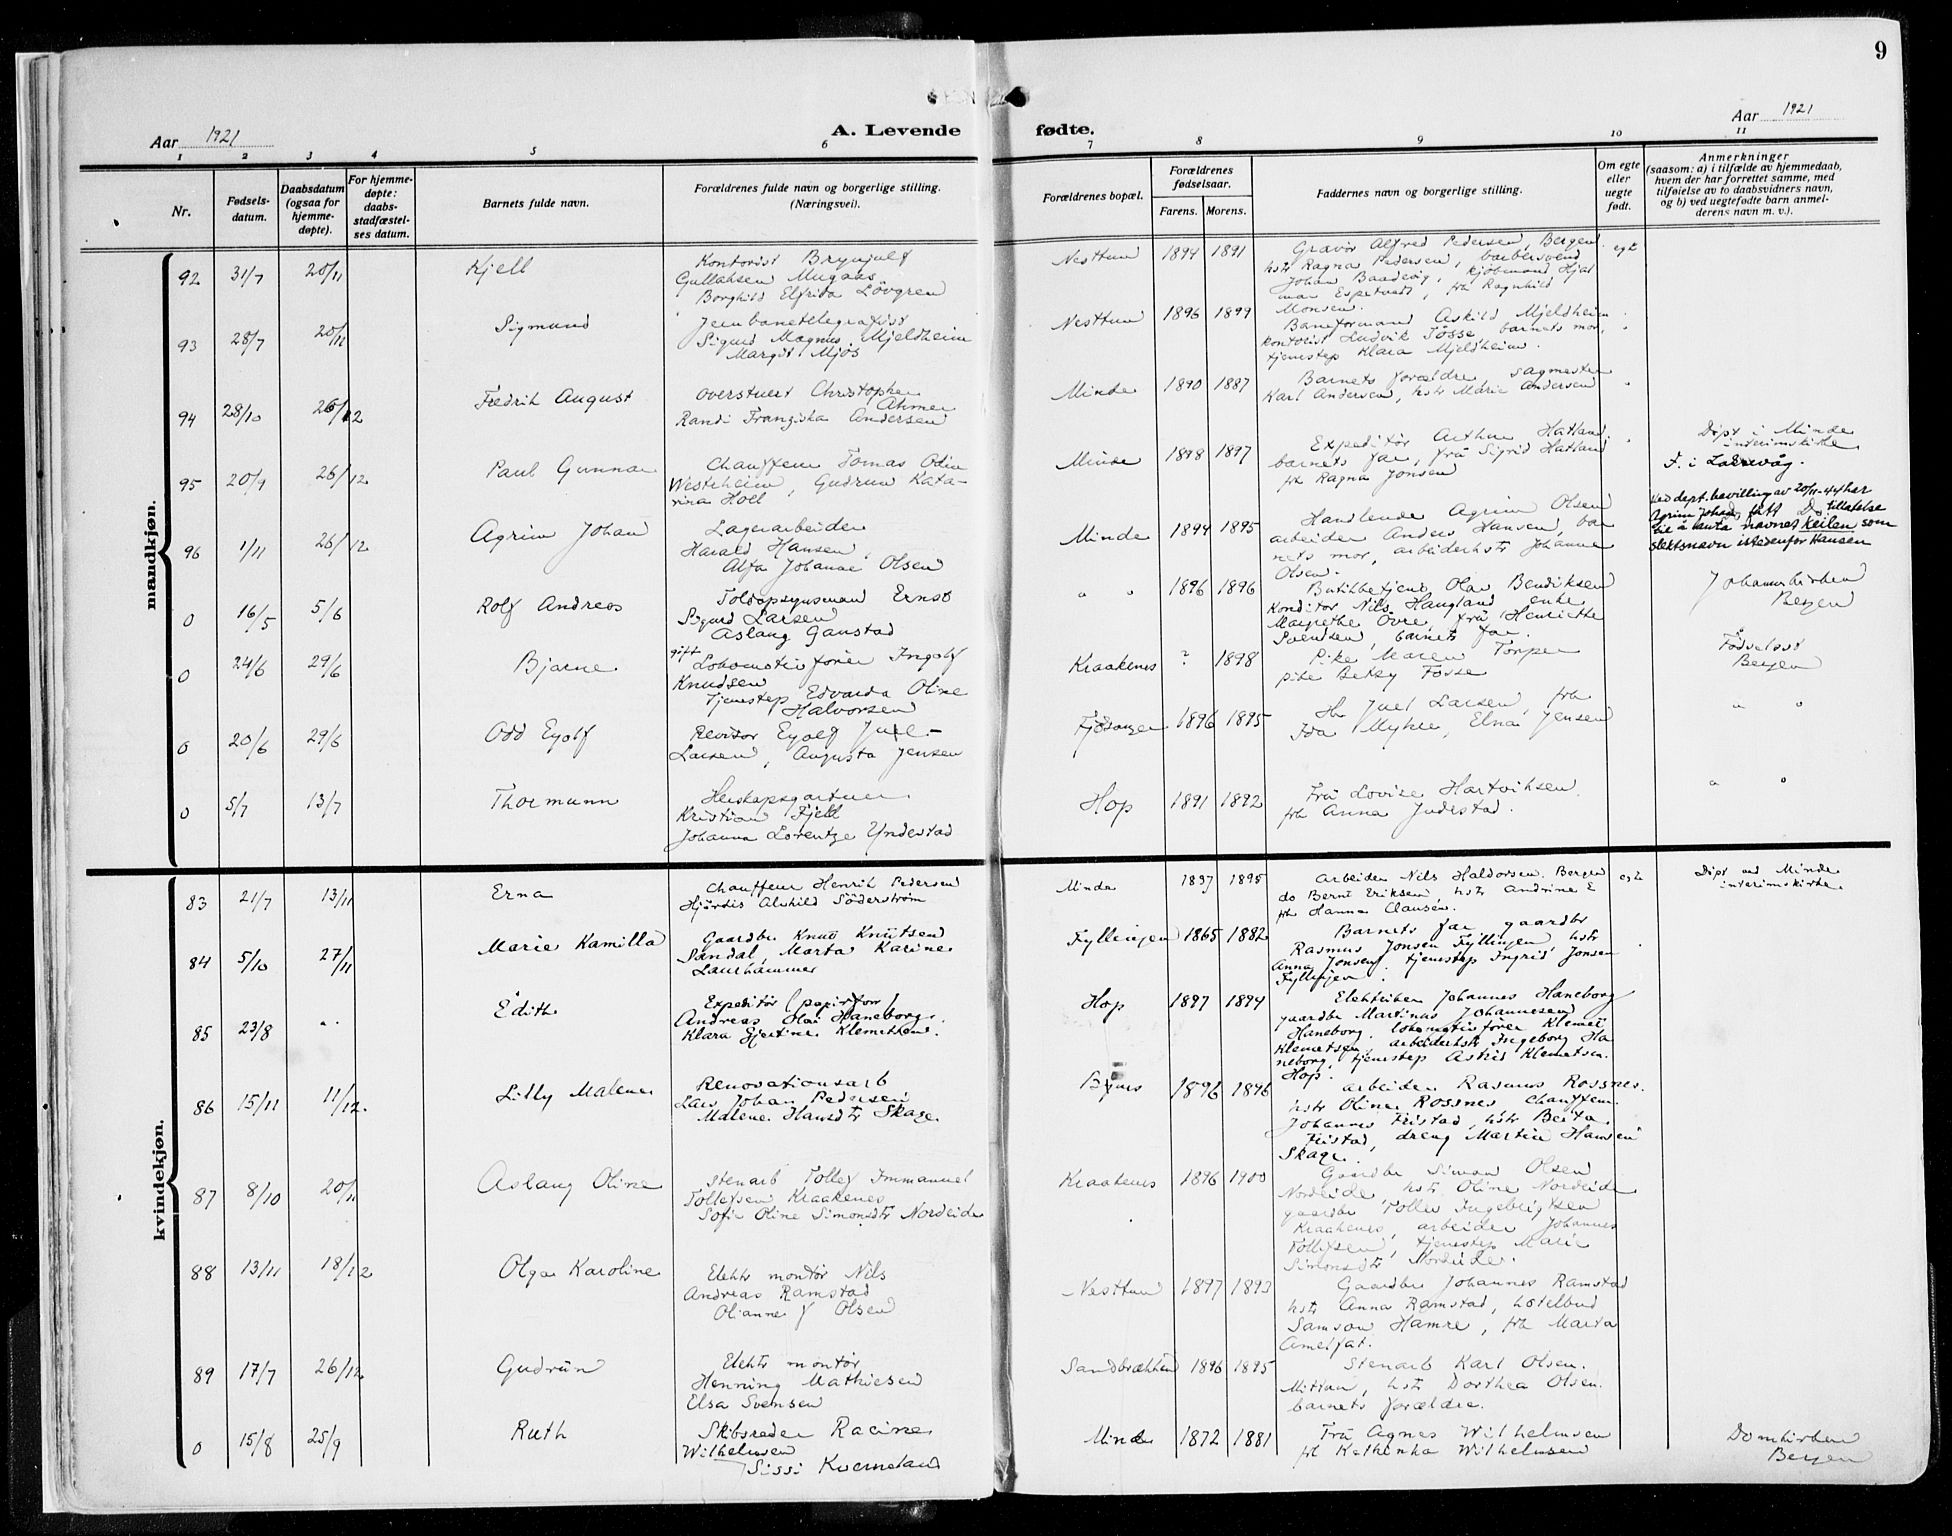 9
Aar 1921
A. Levende fødte.
Aar 1921
1 2 3 4 5 6 7 8 9 10 11
Nr.
Fødsels-
datum.
Daabsdatum
(ogsaa for
hjemme-
døpte).
For hjemme-
døpte:
daabs-
stadfæstel-
ses datum.
Barnets fulde navn.
Forældrenes fulde navn og borgerlige stilling.
(Næringsvei).
Forældrenes bopæl.
Forældrenes
fødselsaar.
Farens. Morens.
Faddernes navn og borgerlige stilling.
Om egte
eller
uegte
født.
Anmerkninger
(saasom: a) i tilfælde av hjemmedaab,
hvem der har forrettet samme, med
tilføielse av to daabsvidners navn,
og b) ved uegtefødte barn anmel-
derens navn m. v.).
mandkjøn.
92 31/7 20/11 Kjell
Kontorist Brynjulf
Gullaksen Mugaas
Borghild Elfrida Lövgren
Nesttun 1894 1891
Gravör Alfred Pedersen, Bergen
hstr Ragna Pedersen, barbersvend
Johan Baadsvig, kjöbmand Hjal
mar Espetvedt, frk Ragnhild
Monsen.
egte
93 28/7 20/11 Sigmund
Jernbanetelegrafist
Sigurd Magnus Mjeldheim
Margit Mjös
Nesttun 1896 1899
Baneformand Askild Mjeldheim
kontorist Ludvik Tösse barnets mor,
tjenestep Klara Mjeldheim.
94 28/10 26/12 Fredrik August
Overstuert Christopher
Ahmer
Randi Franziska Andersen
Minde 1890 1887
Barnets forældre sagmester
Karl Andersen, hstr Marie Andersen
95 20/9 26/12 Paul Gunnar
Chauffeur Tomas Odin
Westerheim, Gudrun Kata-
rina Holl
Minde 1898 1897
Expeditör Arthur Hatland,
barnets far, frü Sigrid Hatland
frk Ragna Jonsen
Döpt i Minde
interimskirke
F. i Laksevåg.
96 1/11 26/12 Agrim Johan
Lagerarbeider
Harald Hansen,
Alfa Johanne Olsen
Minde 1894 1895
Handlende Agrim Olsen
arbeider Anders Hansen, bar
nets mor, arbeiderhstr Johanne
Olsen.
Ved dept. bevilling av 20/11-44 har
Agrim Johan fått tillatelse
til å anta navnet Keilen som
slektsnavn istedenfor Hansen
0 16/5 5/6 Rolf Andreas
Toldopsynsmand Ernst
Sigurd Larsen
Aslaug Ganstad
" " 1896 1896
Butikbetjent Olav Bendiksen
Konditor Nils Haugland enke
Margrethe Övre, frü Henriette
Svendsen, barnets far.
Johanneskirken
Bergen
0 24/6 29/6 Bjarne
gift
Lokomotivförer Ingolf
Knudsen
Tjenestep Edvarda Oline
Halvorsen
Kraakenes ? 1898
Pike Maren Torper
pike Betsy Fosse
Födselsst
Bergen
0 20/6 29/6 Odd Eyolf
Revisor Eyolf Juel-
Larsen, Augusta Jensen
Fjösanger 1896 1895
Hr Juel Larsen, frk
Ida Myhre, Elna Jensen
" "
0 5/7 13/7 Thormann
Herskapsgartner
Kristian Fjell
Johanna Lorentze Yndestad
Hop 1891 1892
Frü Lovise Hartvihsen.
frk Anna Yndestad.
" "
kvindekjøn.
83 21/7 13/11 Erna
Chauffeur Henrik Pedersen
Hjördis Alvhild Söderström
Minde 1897 1895
Arbeider Nils Haldorsen. Bergen
do Bernt Eriksen, hstr Andrine E
frk Hanna Clausen.
egte
Döpt ved Minde
interimskirke.
84 5/10 27/11 Marie Kamilla
Gaardbr Knut Knutsen
Sandal, Marta Karine
Laurhammer
Fyllingen 1865 1882
Barnets far, gaardbr
Rasmus Jonsen Fyllingen, hstr
Anna Jonsen, tjenestep Ingrid Jonsen
Fyllingen.
85 23/8 " Edith
Expeditör (papirforr)
Andreas Olai Haneborg.
Klara Gjertine Klemetsen.
Hop 1897 1894
Elektriker Johannes Haneborg
gaardbr Martinus Johannesen
Haneborg. lokomotivförer Klemet
Klemetsen, arbeiderhstr Ingeborg Ha
neborg, tjenestep Astrid Klemetsen.
Hop.
86 15/11 11/12 Lilly Malene
Renovationsarb
Lars Johan Pedersen
Malene Hansdtr Skage
1896 1896
Arbeider Rasmus Rossnes.
hstr Oline Rossnes Chauffeur
Johannes Fristad, hstr Berta
Fristad, dreng Martin Hansen
Skage.
87 8/10 20/11 Aslaug Oline
Stenarb Tollef Immanuel
Tollefsen Kraakenes
Sofie Oline Simonsdtr Nordeide
Kraakenes 1896 1900
Gaardbr Simon Olsen
Nordeide, hstr Oline Nordeide
gaardbr Tollev Ingebrigtsen
Kraakenes, arbeider Johannes
Tollefsen, tjenestep Marie
Simonsdtr Nordeide.
88 13/11 18/12 Olga Karoline
Elektr montör Nils
Andreas Ramstad
Olianne J Olsen
Nesttun 1897 1893
Gaardbr Johannes Ramstad
hstr Anna Ramstad, hotelbud
Samson Hamre, frk Marta
89 17/7 26/12 Gudrun
Elektr montör
Henning Mathiesen
Elsa Svensen
Sandbrækken 1896 1895
Stenarb Karl Olsen.
hstr Dorthea Olsen.
barnets forældre.
0 15/8 25/9 Ruth
Skibsreder Racine
Wilhelmsen
Sissi Kverneland
Minde 1872 1881
Frü Agnes Wilhelmsen
frk Kathinka Wilhelmsen
Domkirken
Bergen